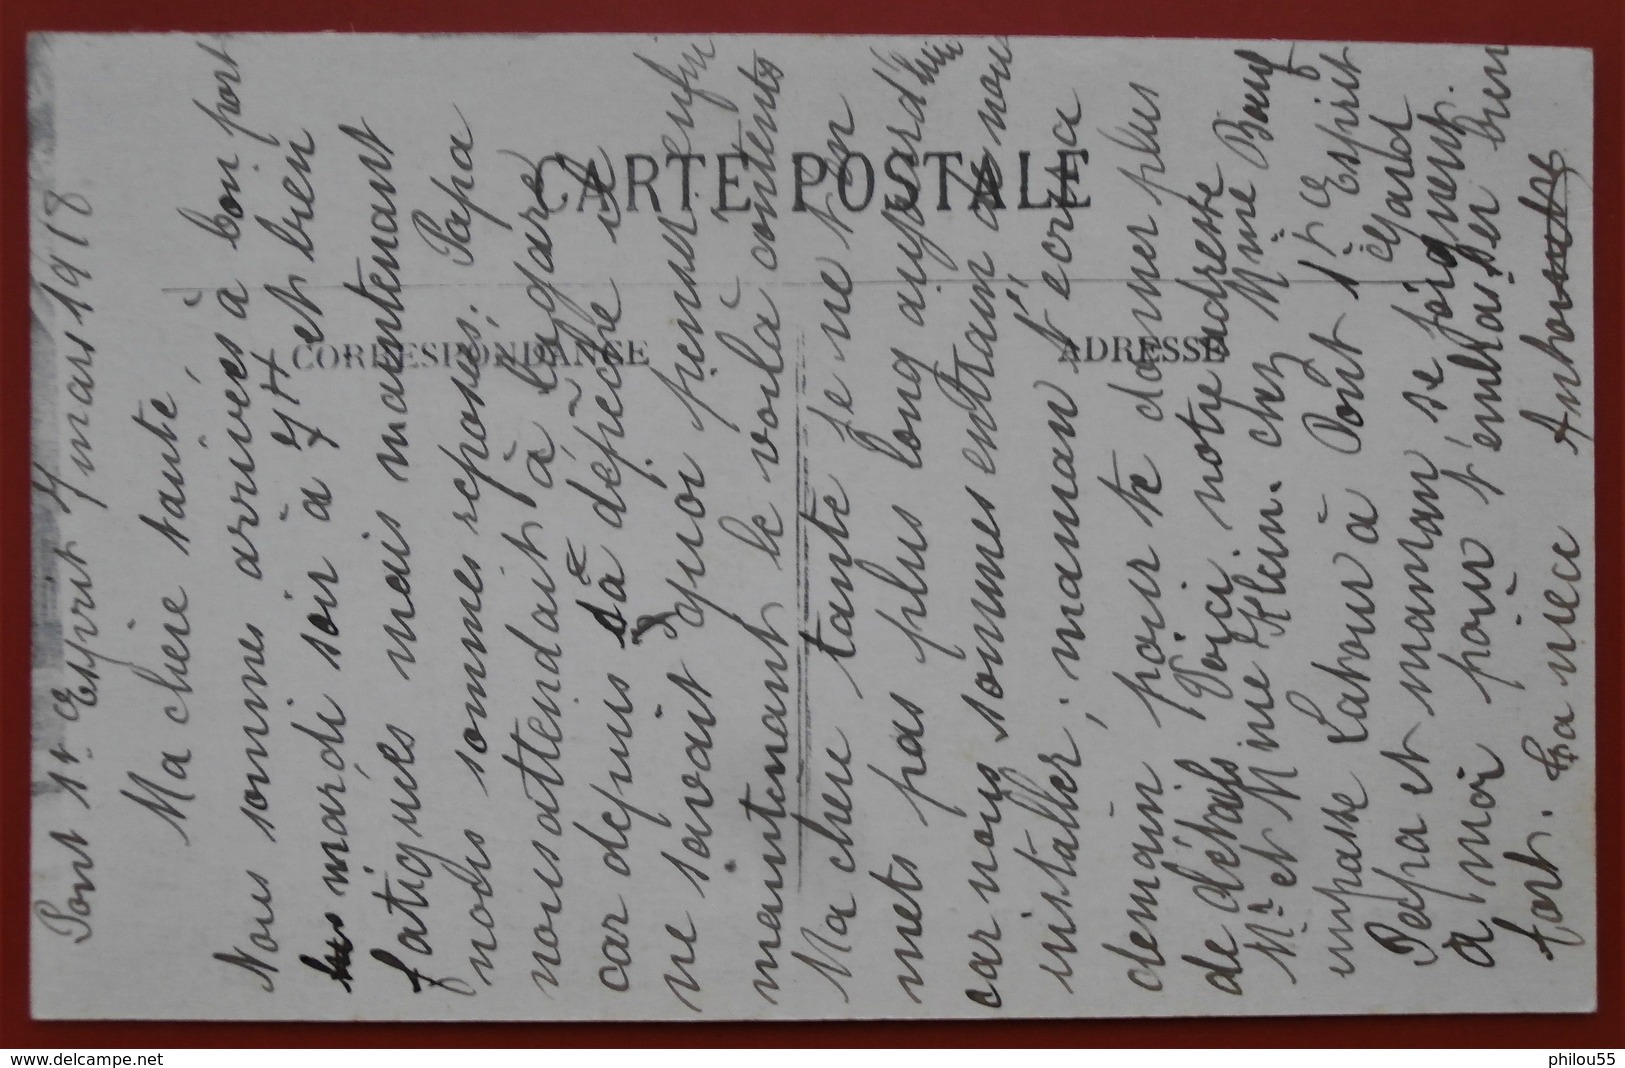 Pont St Esprit 7 mars 1918
Ma chère tante,
Nous sommes arrivés à bon port
mardi soir à 7H et bien
fatiguées mais maintenant
nous sommes reposés. Papa
nous attendait à la gare
car depuis sa dépêche il
ne savait quoi penser enfin
maintenant le voilà content
Ma chère tante je ne t'en
mets pas plus long aujourd'hui
car nous sommes entrain de nous
installer, maman t'écrira
demain pour te donner plus
de détails Voici notre adresse
Mr et Mme Klein. chez Mme Bœuf
impasse Latour à Pont St Esprit
Gard
Papa et maman se joignent
à moi pour t'embrasser bien
fort. Ta nièce
CARTE POSTALE
CORRESPONDANCE
ADRESSE
www.delcampe.net
philou55